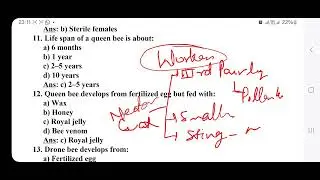 22:11
22%
Ans: b) Sterile females
11. Life span of a queen bee is about:
a) 6 months
b) 1 year
c) 2–5 years
d) 10 years
Ans: c) 2–5 years
12. Queen bee develops from fertilized egg but fed with:
a) Wax
b) Honey
c) Royal jelly
d) Bee venom
Ans: c) Royal jelly
13. Drone bee develops from:
a) Fertilized egg
Workers
Small
Sting